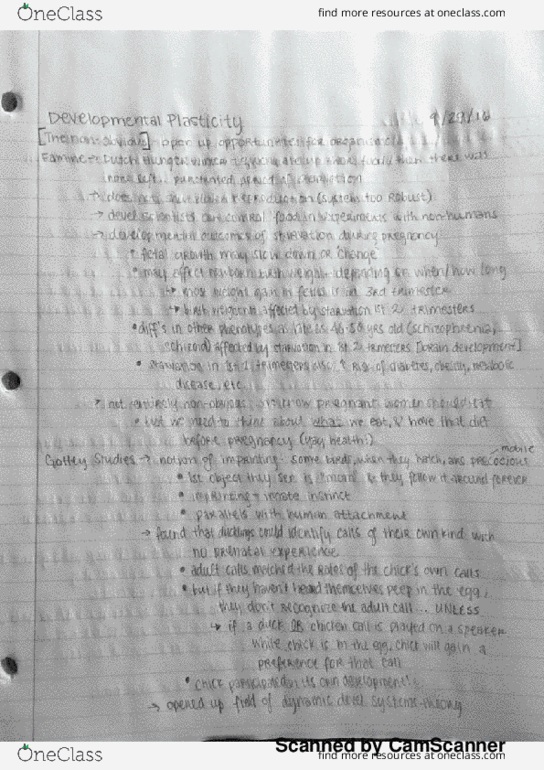 OneClass
find more resources at oneclass.com
Developmental Plasticity
9/29/16
[The non-obvious] open up opportunities for
Famine → Dutch Hunger Winter then there was
none left.
→ does not shut down reproduction (system too robust)
→ devel scientists can control food in experiments with non-humans
→ developmental outcomes of starvation during pregnancy
• fetal growth may slow down or change
• may affect birth weight depending on when/how long
↳ most weight gain of fetus is in 3rd trimester
↳ birth weight affected by starvation in 1st 2 trimesters
• diff's in other phenotypes as late as 46-50 yrs old (schizophrenia,
schizoid) affected by starvation in 1st 2 trimesters [brain development]
• starvation in 1st 2 trimesters also ↑ risk of diabetes, obesity, metabolic
disease, etc.
→ not entirely non-obvious; know pregnant women should eat
• but we need to think about what we eat, & have that diet
before pregnancy (yay health!)
mobile
Gottlieb Studies → notion of imprinting: some birds, when they hatch, are precocious
• 1st object they see is "mom" & they follow it around forever
• imprinting = innate instinct
• parallels with human attachment
→ found that ducklings could identify calls of their own kind with
no prenatal experience
• adult calls matched the rates of the chick's own calls
• but if they haven't heard themselves peep in the egg,
they don't recognize the adult call ... UNLESS
↳ if a duck OR chicken call is played on a speaker
while chick is in the egg, chick will gain a
preference for that call
• chick participated in its own development!
→ opened up field of dynamic devel systems theory
Scanned by CamScanner
OneClass
find more resources at oneclass.com